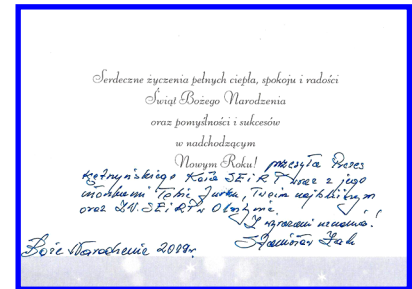 Serdeczne życzenia pełnych ciepła, spokoju i radości
Świąt Bożego Narodzenia
oraz pomyślności i sukcesów
w nadchodzącym
Nowym Roku! przesyła Prezes
Kętrzyńskiego Koła SEiRP wraz z jego
członkami Tobie Jurku, Twoim najbliższym
oraz ZW. SEiRP w Olsztynie.
Z wyrazami uznania!
Stanisław
Boże Narodzenie